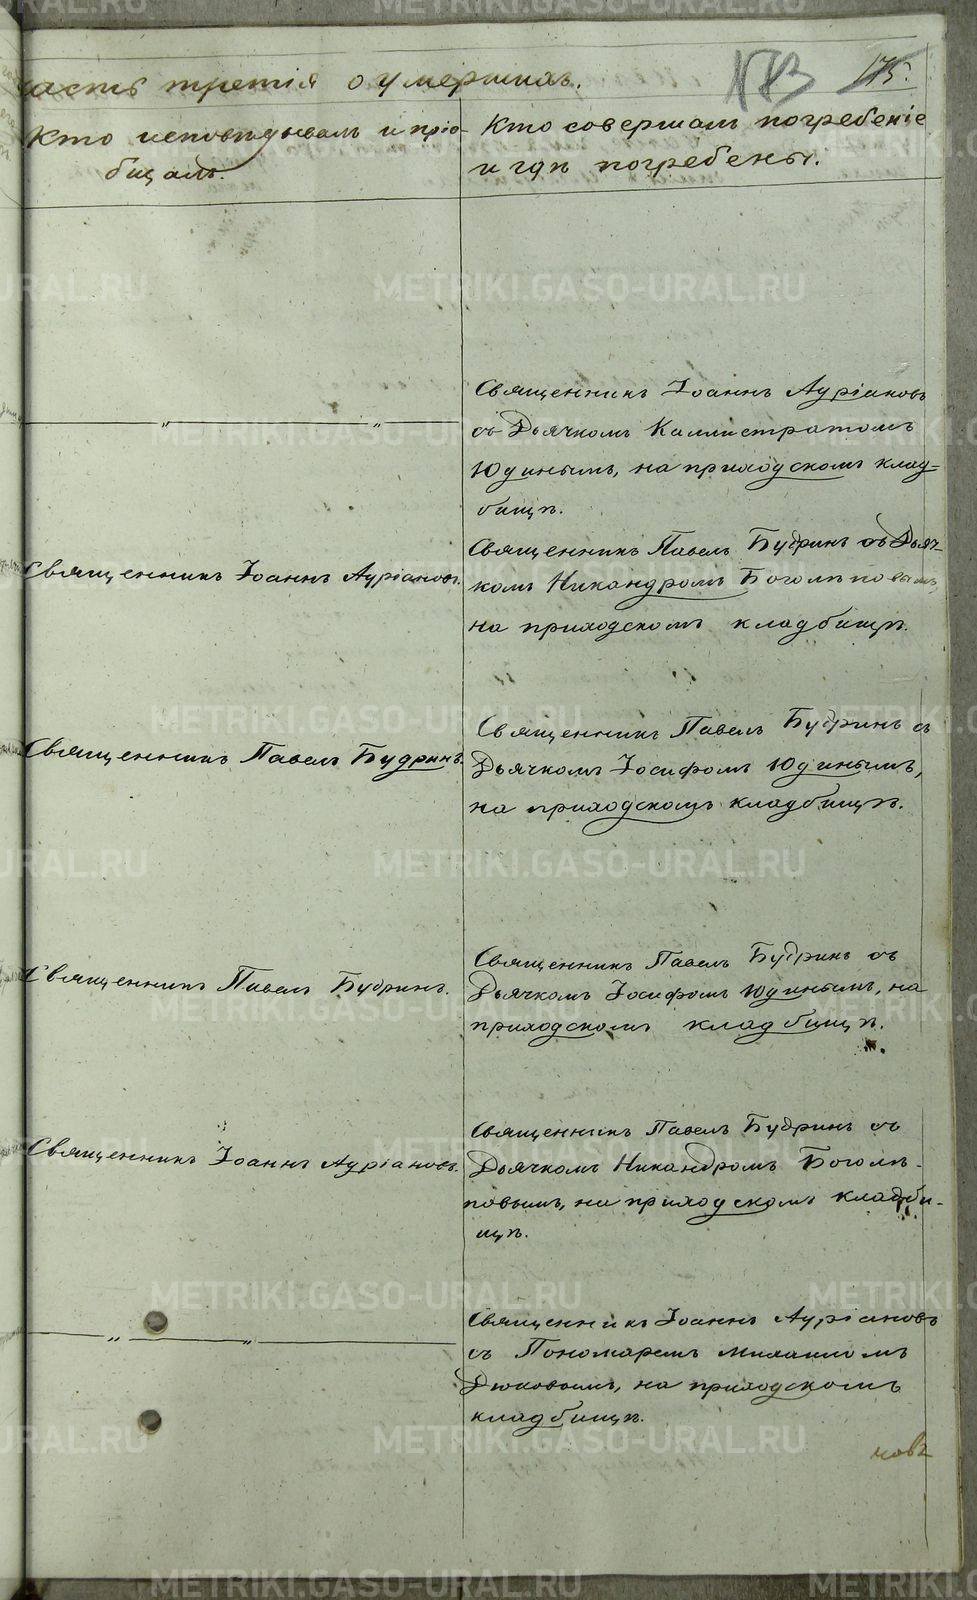 часть третія о умершихъ.
175.
Кто исповѣдывалъ и прiо-
бщалъ
Кто совершалъ погребеніе
и гдѣ погребены.
Священникъ Іоаннъ Ауріановъ
съ Дьячкомъ Каллистратомъ
Юдинымъ, на приходскомъ клад-
бищѣ.
Священникъ Іоаннъ Ауріановъ.
Священникъ Павелъ Будринъ съ Дьяч-
комъ Никандромъ Боголѣповымъ,
на приходскомъ кладбищѣ.
Священникъ Павелъ Будринъ.
Священникъ Павелъ Будринъ съ
Дьячкомъ Іосифомъ Юдинымъ,
на приходскомъ кладбищѣ.
Священникъ Павелъ Будринъ.
Священникъ Павелъ Будринъ съ
Дьячкомъ Іосифомъ Юдинымъ, на
приходскомъ кладбищѣ.
Священникъ Іоаннъ Ауріановъ.
Священникъ Павелъ Будринъ съ
Дьячкомъ Никандромъ Боголѣ-
повымъ, на приходскомъ кладби-
щѣ.
Священникъ Іоаннъ Ауріановъ
съ Пономаремъ Михаиломъ
Дюковымъ, на приходскомъ
кладбищѣ.
новъ
METRIKI.GASO-URAL.RU